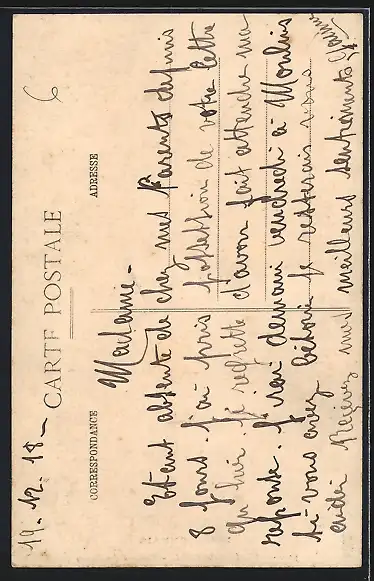 19. 12. 18 -
CARTE POSTALE
CORRESPONDANCE
ADRESSE
6
Madame -
Etant absente de chez mes Parents depuis
8 jours. j'ai pris possession de votre lettre
qu'hier. je regrette d'avoir fait attendre ma
reponse. j'irai demain vendredi à Moulins
si vous avez besoin je resterais vous
aider Recevez mes meilleurs sentiments